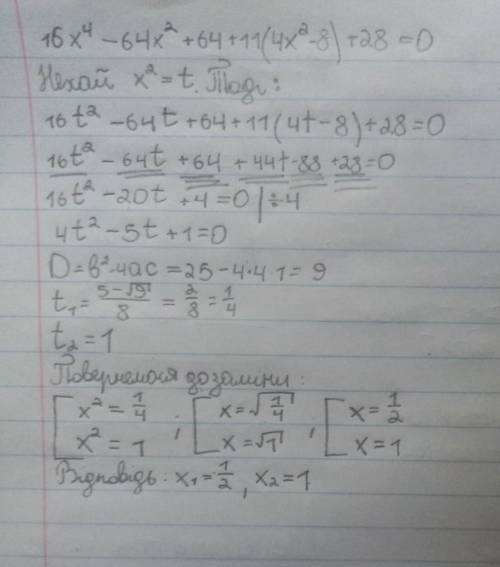 16x⁴ - 64x² + 64 + 11(4x² - 8) + 28 = 0
Нехай x² = t. Тоді:
16t² - 64t + 64 + 11(4t - 8) + 28 = 0
16t² - 64t + 64 + 44t - 88 + 28 = 0
16t² - 20t + 4 = 0 | ÷4
4t² - 5t + 1 = 0
D = b² - 4ac = 25 - 4·4·1 = 9
t₁ = (5 - √9)/8 = 2/8 = 1/4
t₂ = 1
Повернемося до заміни:
[ x² = 1/4 ; [ x = √(1/4) ; [ x = 1/2
x² = 1 x = √1 x = 1
Відповідь: x₁ = 1/2, x₂ = 1